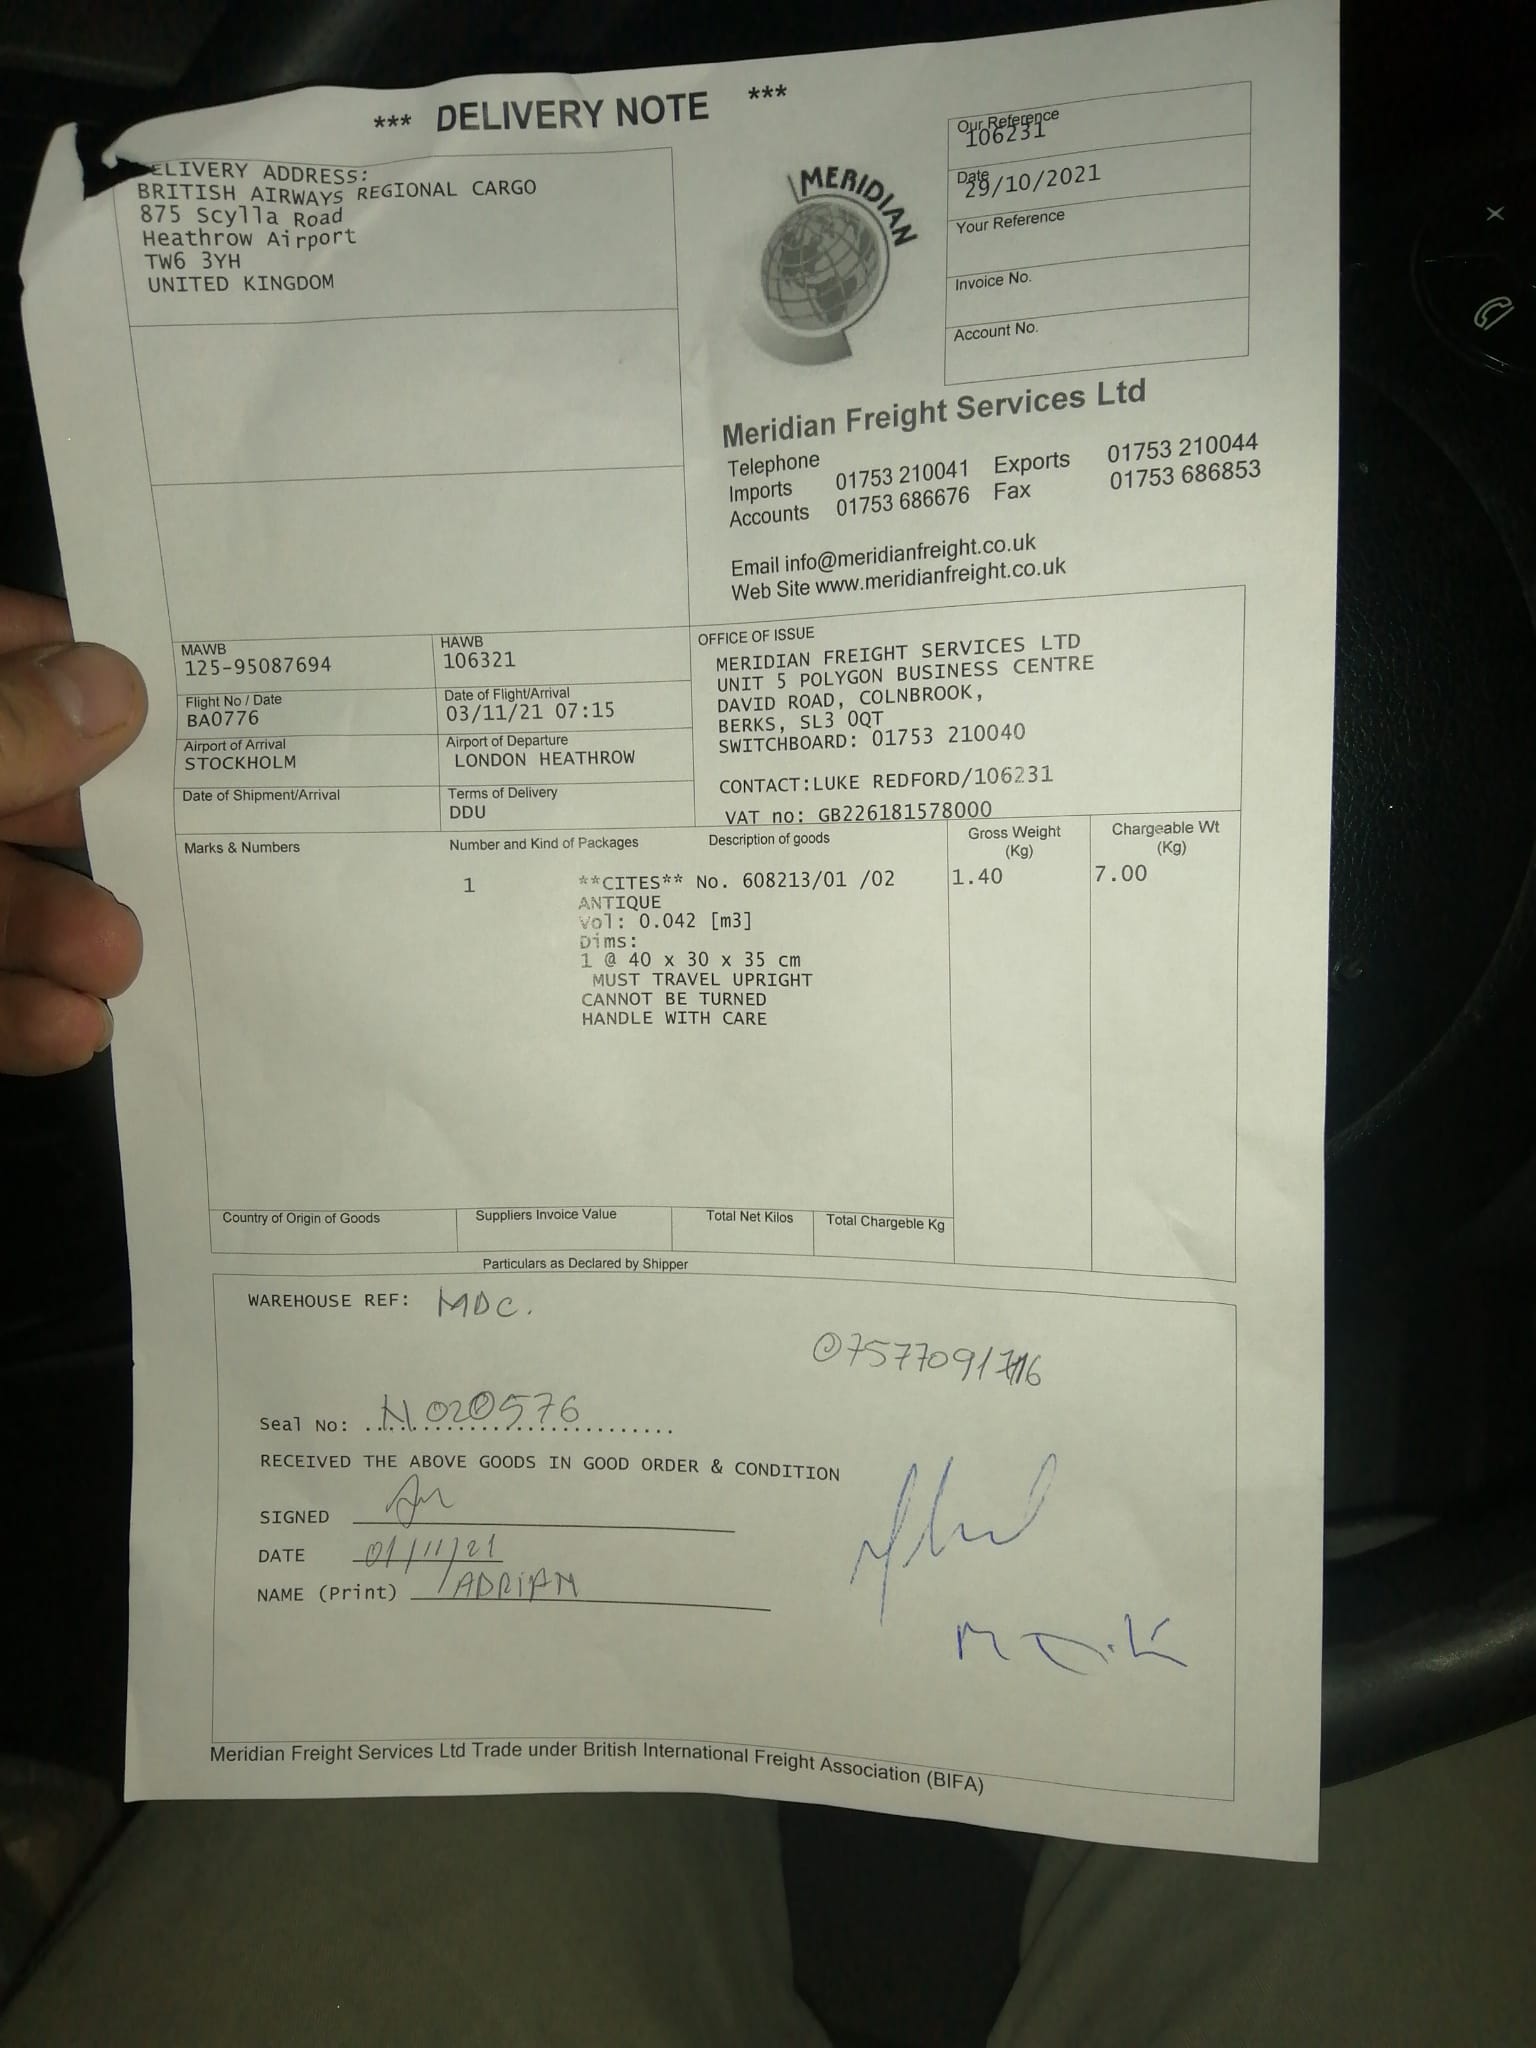 *** DELIVERY NOTE ***
ELIVERY ADDRESS:
BRITISH AIRWAYS REGIONAL CARGO
875 Scylla Road
Heathrow Airport
TW6 3YH
UNITED KINGDOM
MERIDIAN
Our Reference
106231
Date
29/10/2021
Your Reference
Invoice No.
Account No.
Meridian Freight Services Ltd
Telephone
Imports 01753 210041 Exports 01753 210044
Accounts 01753 686676 Fax 01753 686853
Email info@meridianfreight.co.uk
Web Site www.meridianfreight.co.uk
MAWB
125-95087694
HAWB
106321
Flight No / Date
BA0776
Date of Flight/Arrival
03/11/21 07:15
Airport of Arrival
STOCKHOLM
Airport of Departure
LONDON HEATHROW
Date of Shipment/Arrival
Terms of Delivery
DDU
OFFICE OF ISSUE
MERIDIAN FREIGHT SERVICES LTD
UNIT 5 POLYGON BUSINESS CENTRE
DAVID ROAD, COLNBROOK,
BERKS, SL3 0QT
SWITCHBOARD: 01753 210040
CONTACT:LUKE REDFORD/106231
VAT no: GB226181578000
Marks & Numbers Number and Kind of Packages Description of goods Gross Weight (Kg) Chargeable Wt (Kg)
1 **CITES** No. 608213/01 /02 1.40 7.00
ANTIQUE
Vol: 0.042 [m3]
Dims:
1 @ 40 x 30 x 35 cm
MUST TRAVEL UPRIGHT
CANNOT BE TURNED
HANDLE WITH CARE
Country of Origin of Goods Suppliers Invoice Value Total Net Kilos Total Chargeble Kg
Particulars as Declared by Shipper
WAREHOUSE REF: MDC.
Seal No: N020576
RECEIVED THE ABOVE GOODS IN GOOD ORDER & CONDITION
SIGNED
DATE 01/11/21
NAME (Print) ADRIAN
Meridian Freight Services Ltd Trade under British International Freight Association (BIFA)